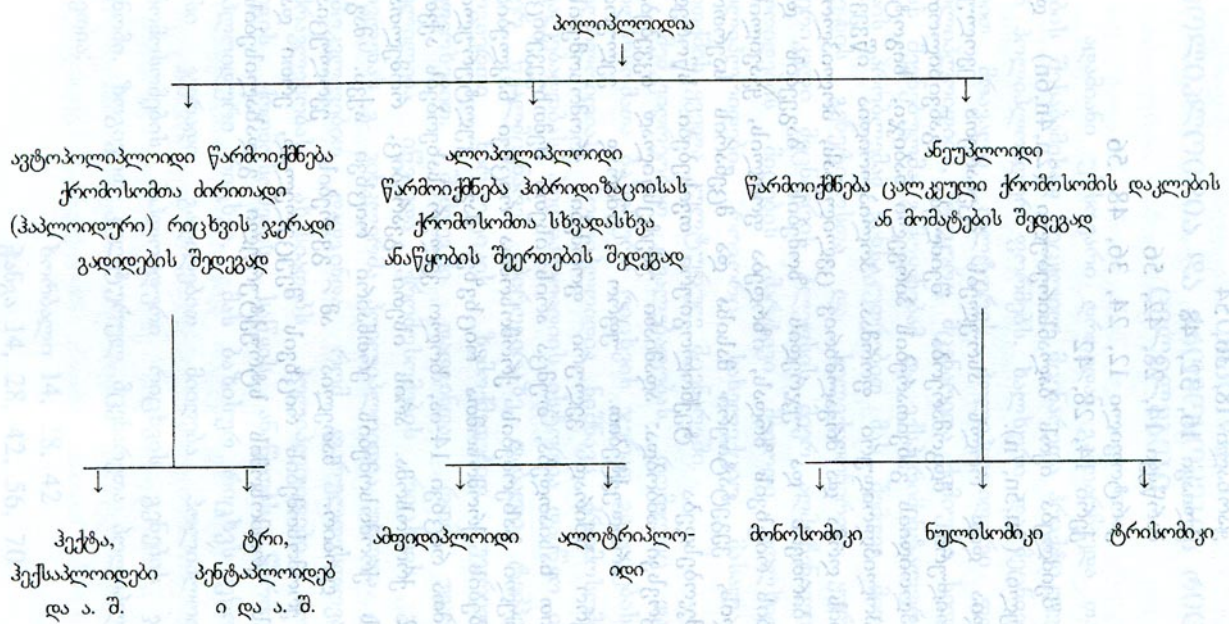 პოლიპლოიდია
ავტოპოლიპლოიდი წარმოიქმნება
ქრომოსომთა ძირითადი
(ჰაპლოიდური) რიცხვის ჯერადი
გადიდების შედეგად
ალოპოლიპლოიდი
წარმოიქმნება ჰიბრიდიზაციისას
ქრომოსომთა სხვადასხვა
ანაწყობის შეერთების შედეგად
ანეუპლოიდი
წარმოიქმნება ცალკეული ქრომოსომის დაკლების
ან მომატების შედეგად
ჰექტა,
ჰექსაპლოიდები
და ა. შ.
ტრი,
პენტაპლოიდებ
ი და ა. შ.
ამფიდიპლოიდი
ალოტრიპლო-
იდი
მონოსომიკი
ნულისომიკი
ტრისომიკი